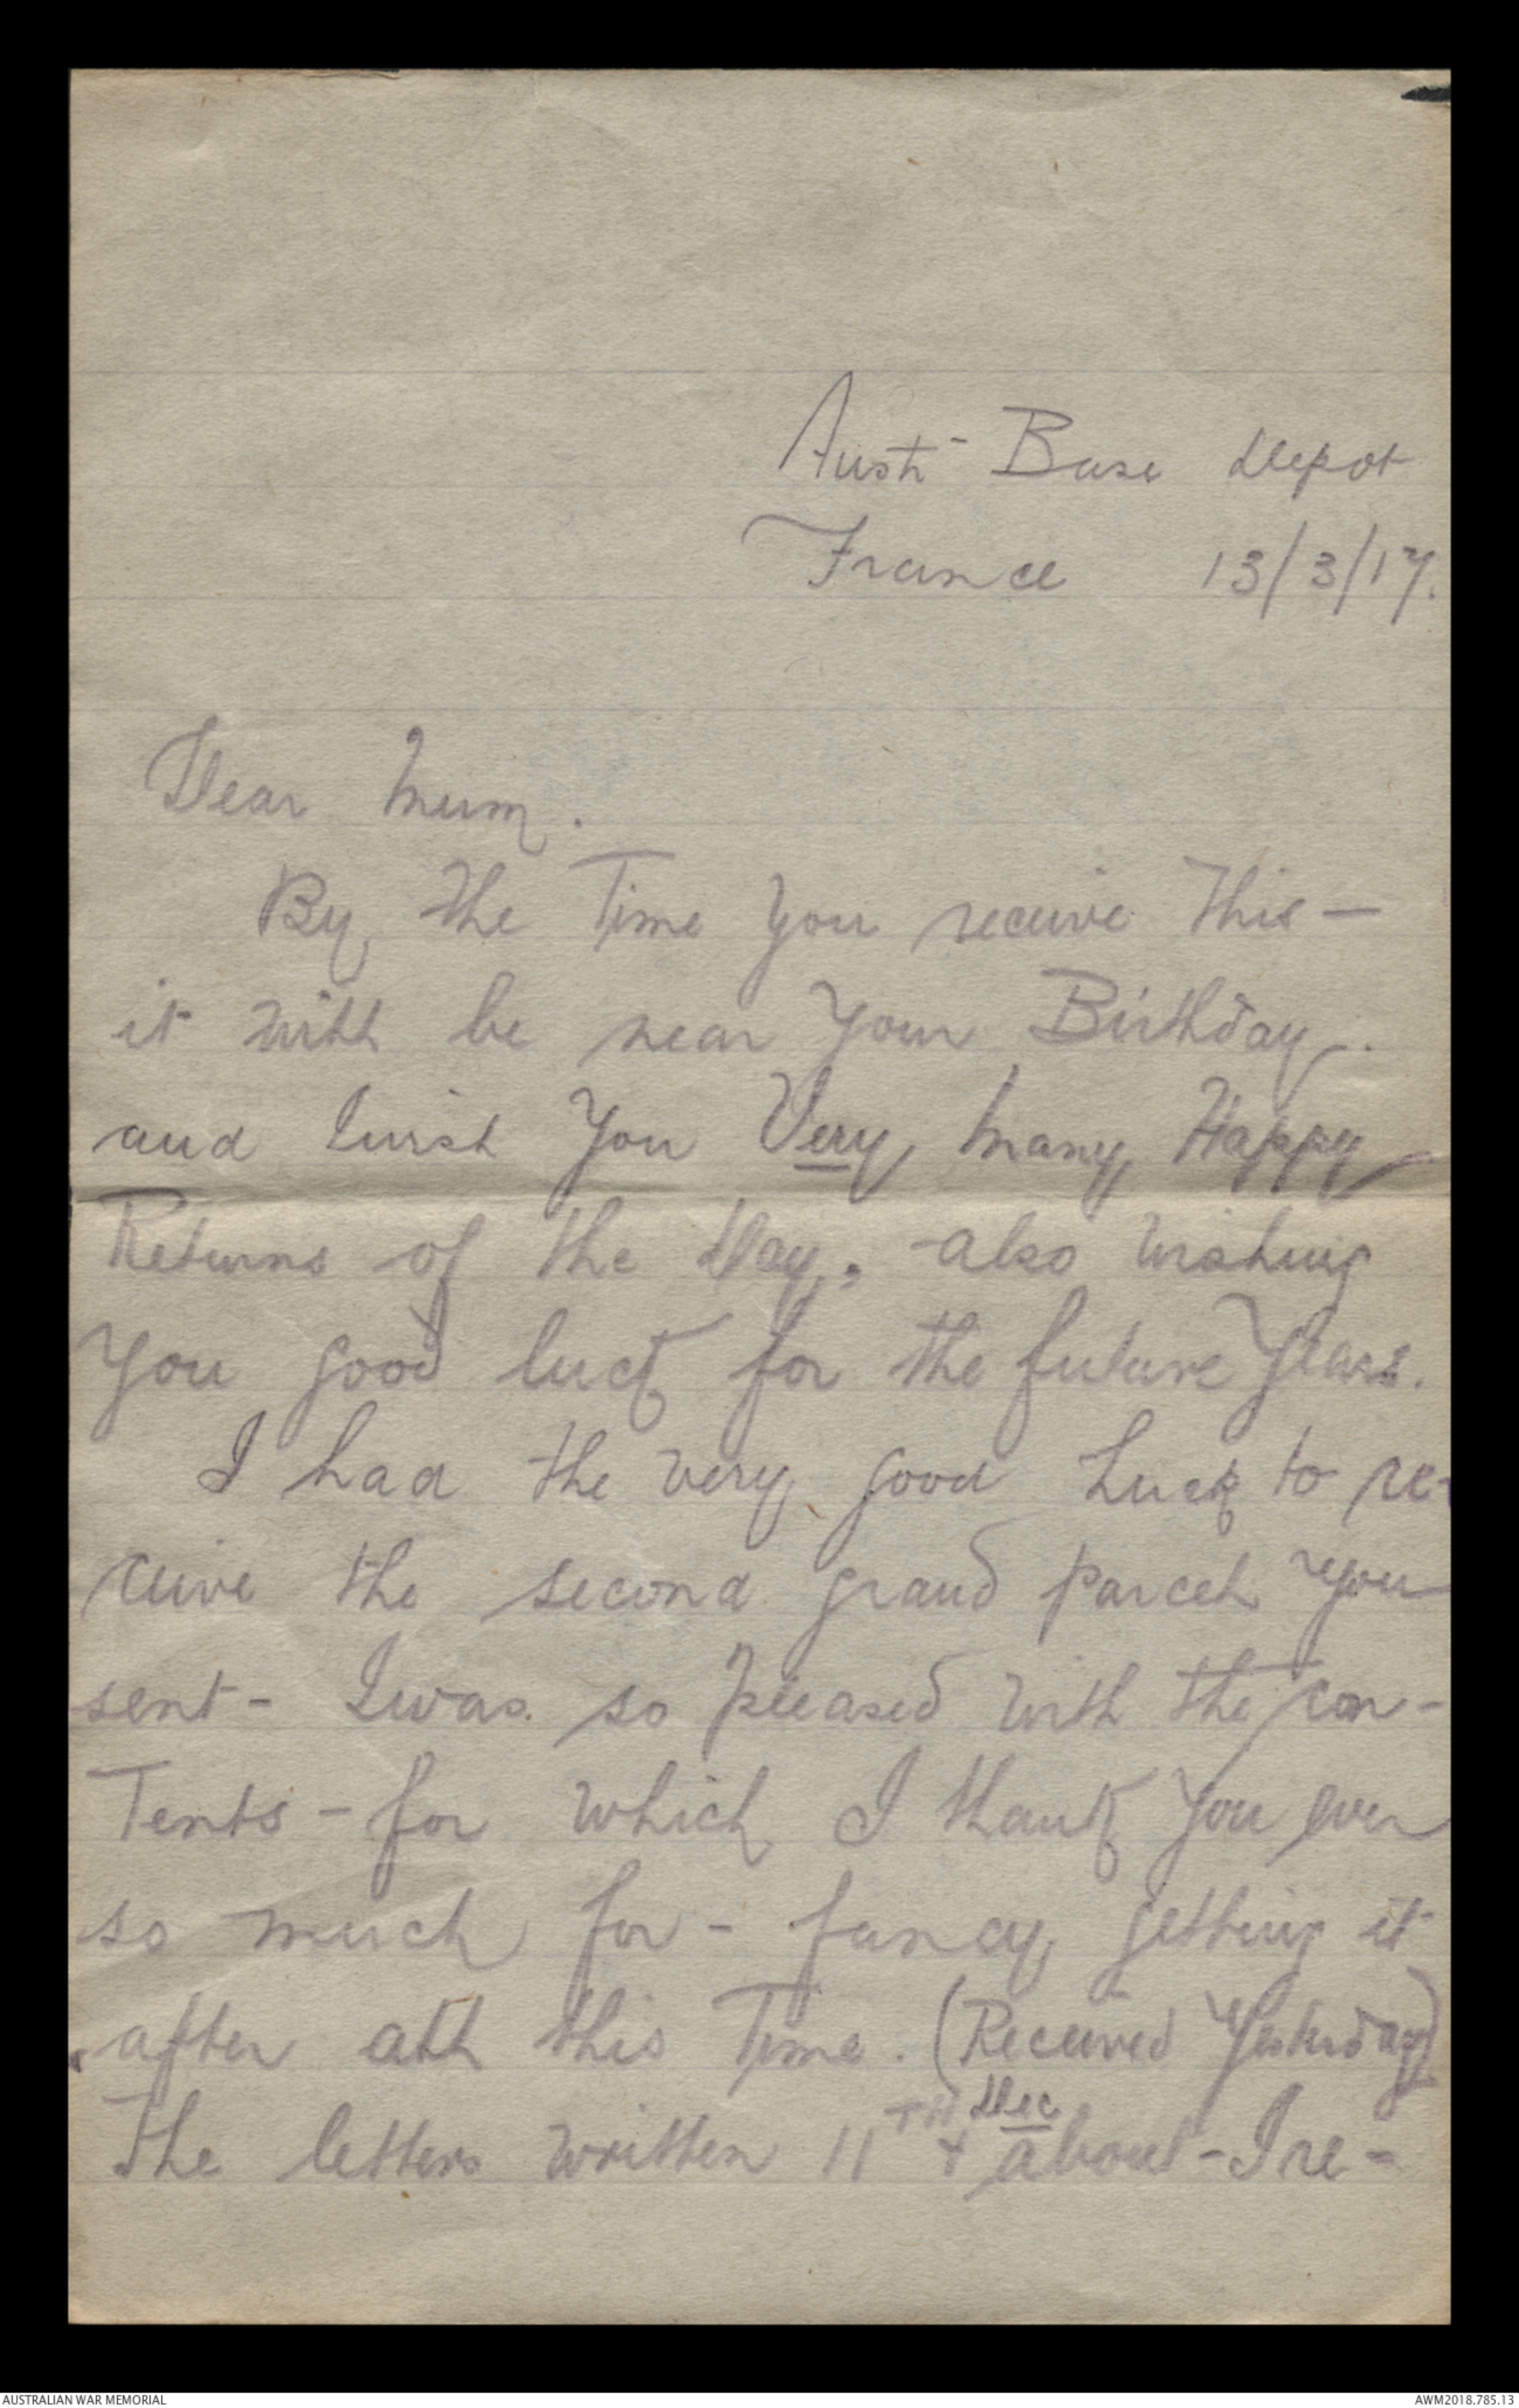 Austr- Base Depot
France 13/3/17.
Dear Mum.
By the Time you receive This —
it will be near your Birthday.
and I wish you Very Many Happy
Returns of the Day, also wishing
you good luck for the future Years.
I had the very good Luck to re-
ceive the second grand parcel you
sent - I was so pleased with the con-
Tents - for which I thank you ever
so much for - fancy getting it
after all this Time. (Received Yesterday)
The letters written 11TH Dec + about - I re-
AUSTRALIAN WAR MEMORIAL
AWM2018.785.13